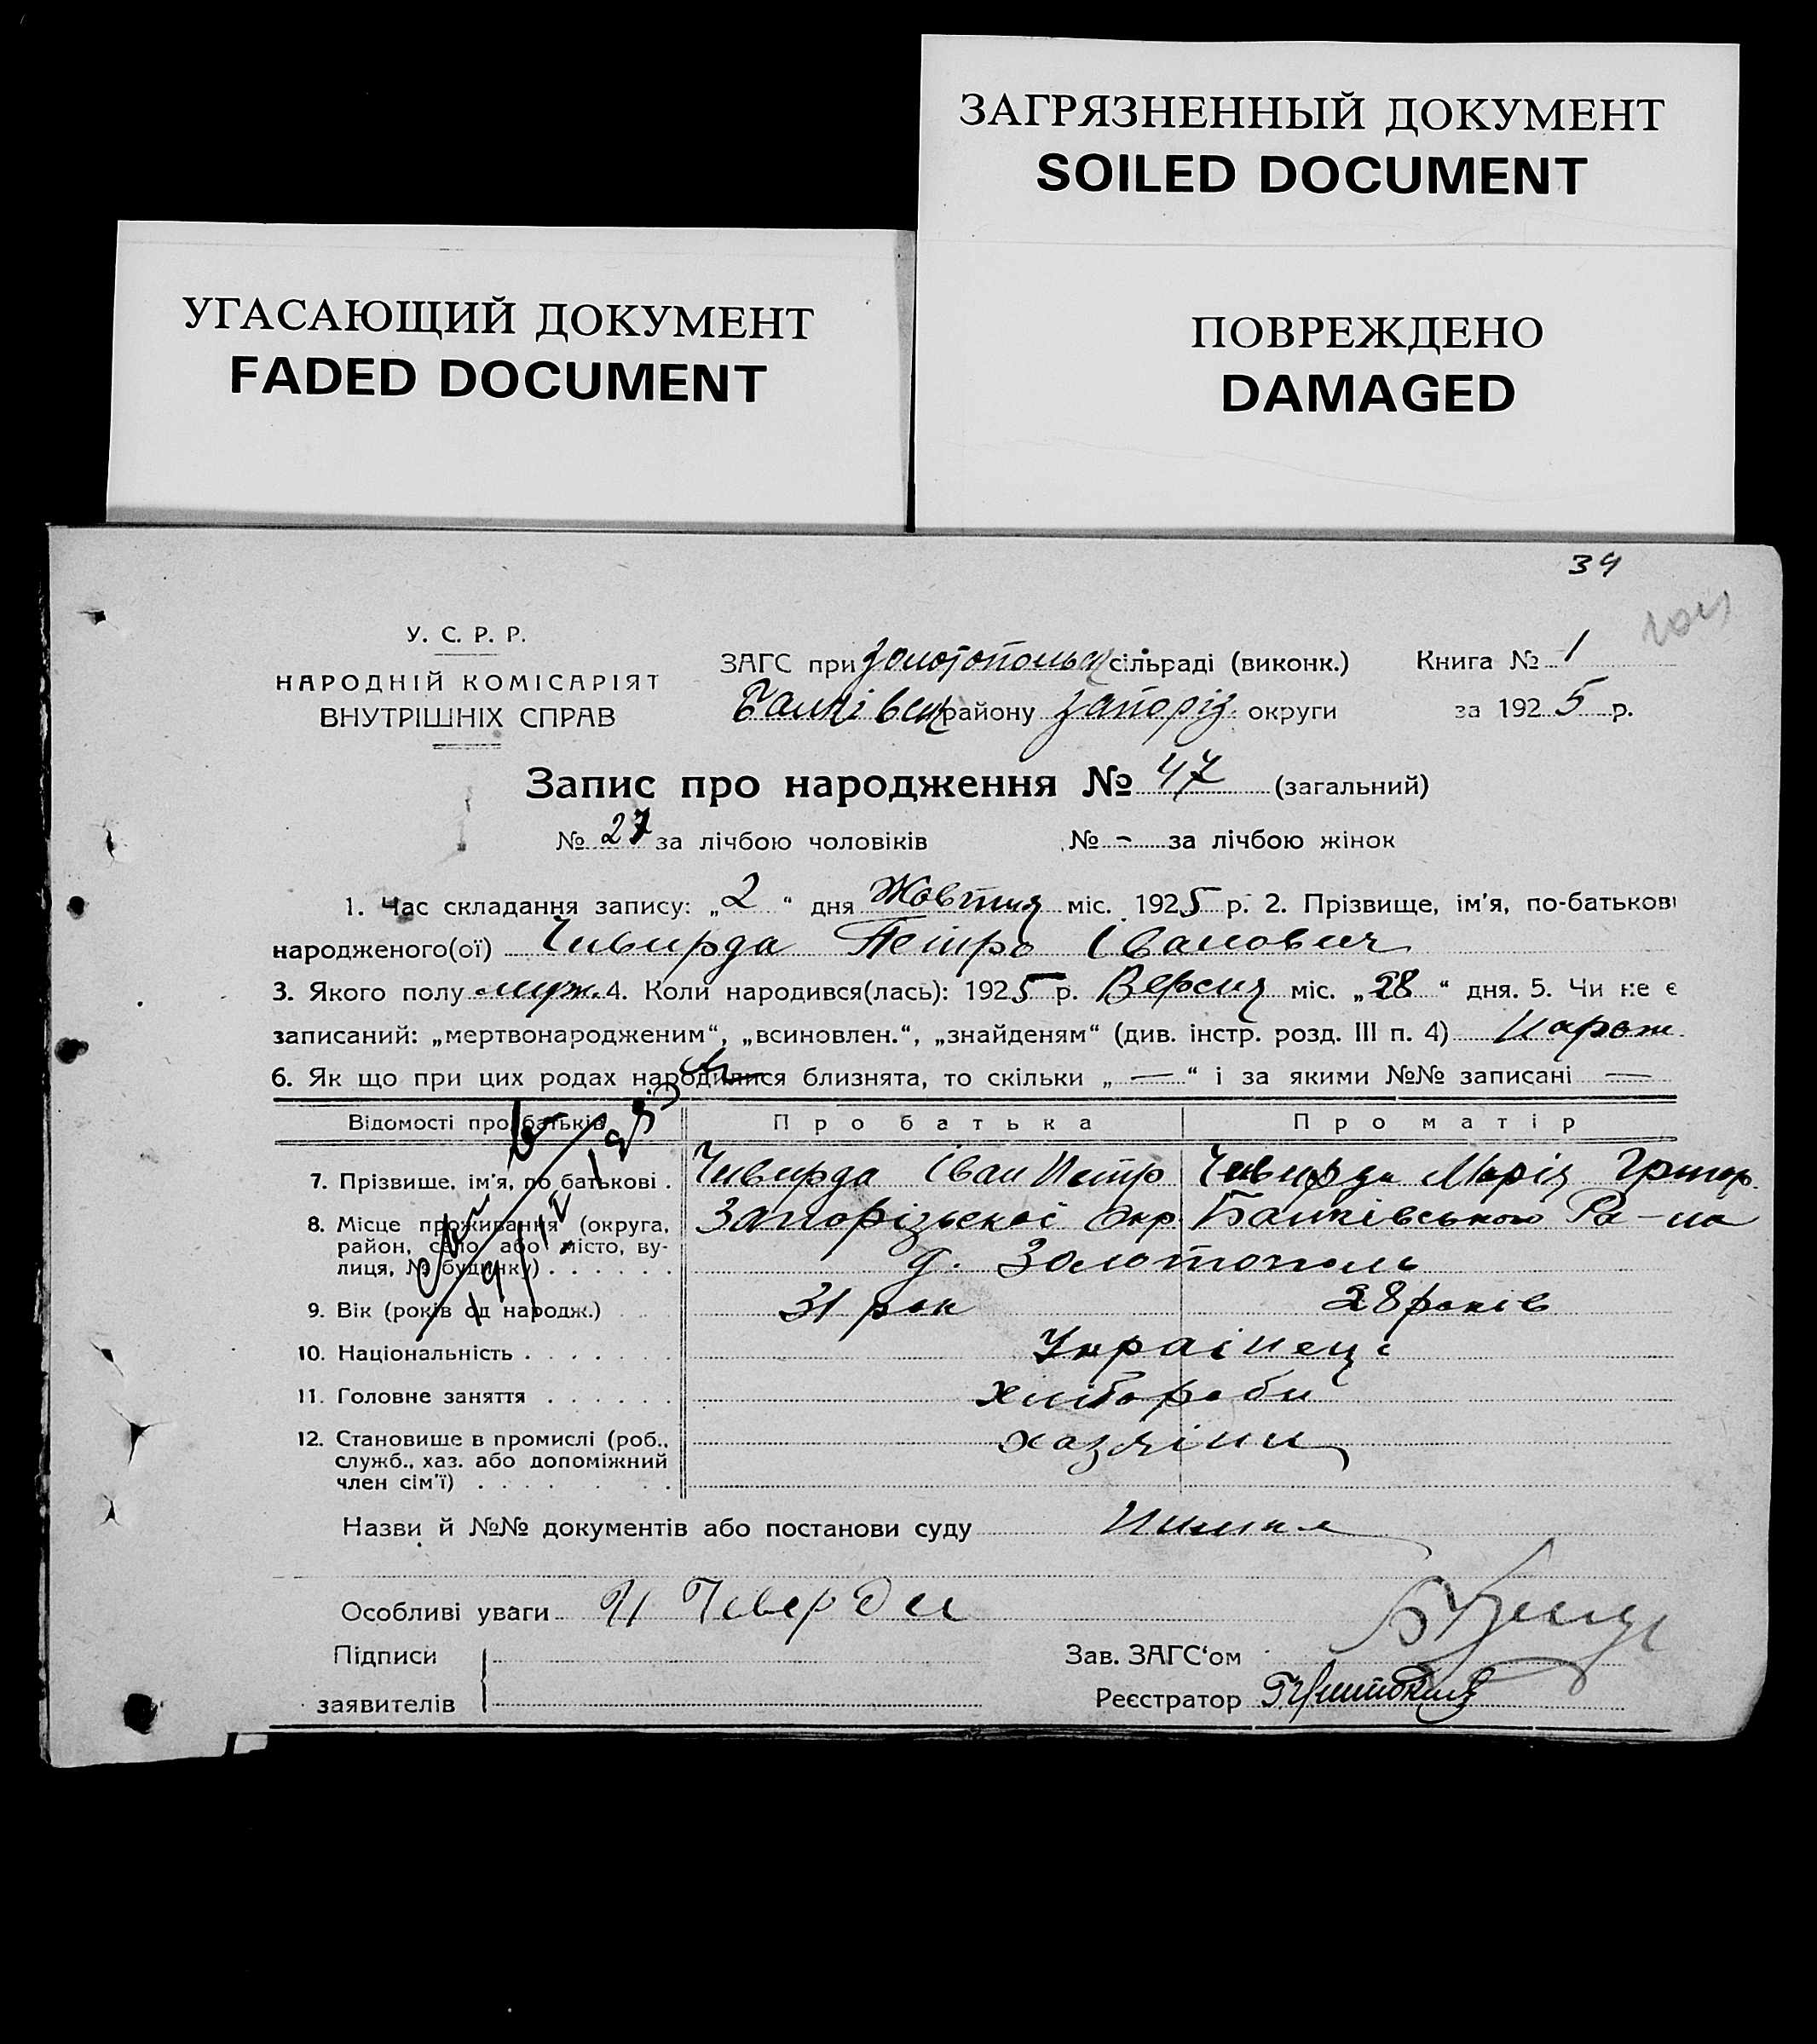 ЗАГРЯЗНЕННЫЙ ДОКУМЕНТ
SOILED DOCUMENT
УГАСАЮЩИЙ ДОКУМЕНТ
FADED DOCUMENT
ПОВРЕЖДЕНО
DAMAGED
34
У. С. Р. Р.
НАРОДНІЙ КОМІСАРІЯТ
ВНУТРІШНІХ СПРАВ
ЗАГС при Золотопольск сільраді (виконк.) Книга № 1
Балківск району Запоріз. округи за 1925 р.
Запис про народження № 47 (загальний)
№ 27 за лічбою чоловіків № – за лічбою жінок
1. Час складання запису: „2“ дня Жовтня міс. 1925 р. 2. Прізвище, ім'я, по-батькові
народженого(ої) Чивирда Петро Іванович
3. Якого полу муж. 4. Коли народився(лась): 1925 р. Версня міс. „28“ дня. 5. Чи не є
записаний: „мертвонародженим“, „всиновлен.“, „знайденям“ (див. інстр. розд. III п. 4) нарож
6. Як що при цих родах народилися близнята, то скільки „—“ і за якими №№ записані —
Відомості про батьків Про батька Про матір
7. Прізвише, ім'я, по батькові . Чивирда Іван Петр Чивирда Марія Григор.
8. Місце проживання (округа, район, село або місто, вулиця, № будинку) . . . . . . Запорізьскої Окр. Балківського Ра-на
д. Золотополь
9. Вік (років од народж.) 31 рок 28 років
10. Національність . . . . . . . Українці
11. Головне заняття . . . . . . хлібороби
12. Становише в промислі (роб., служб., хаз. або допоміжний член сім'ї) . . . . . . . хазяіни
Назви й №№ документів або постанови суду
Особливі уваги
Підписи
заявителів
Зав. ЗАГС'ом
Реєстратор